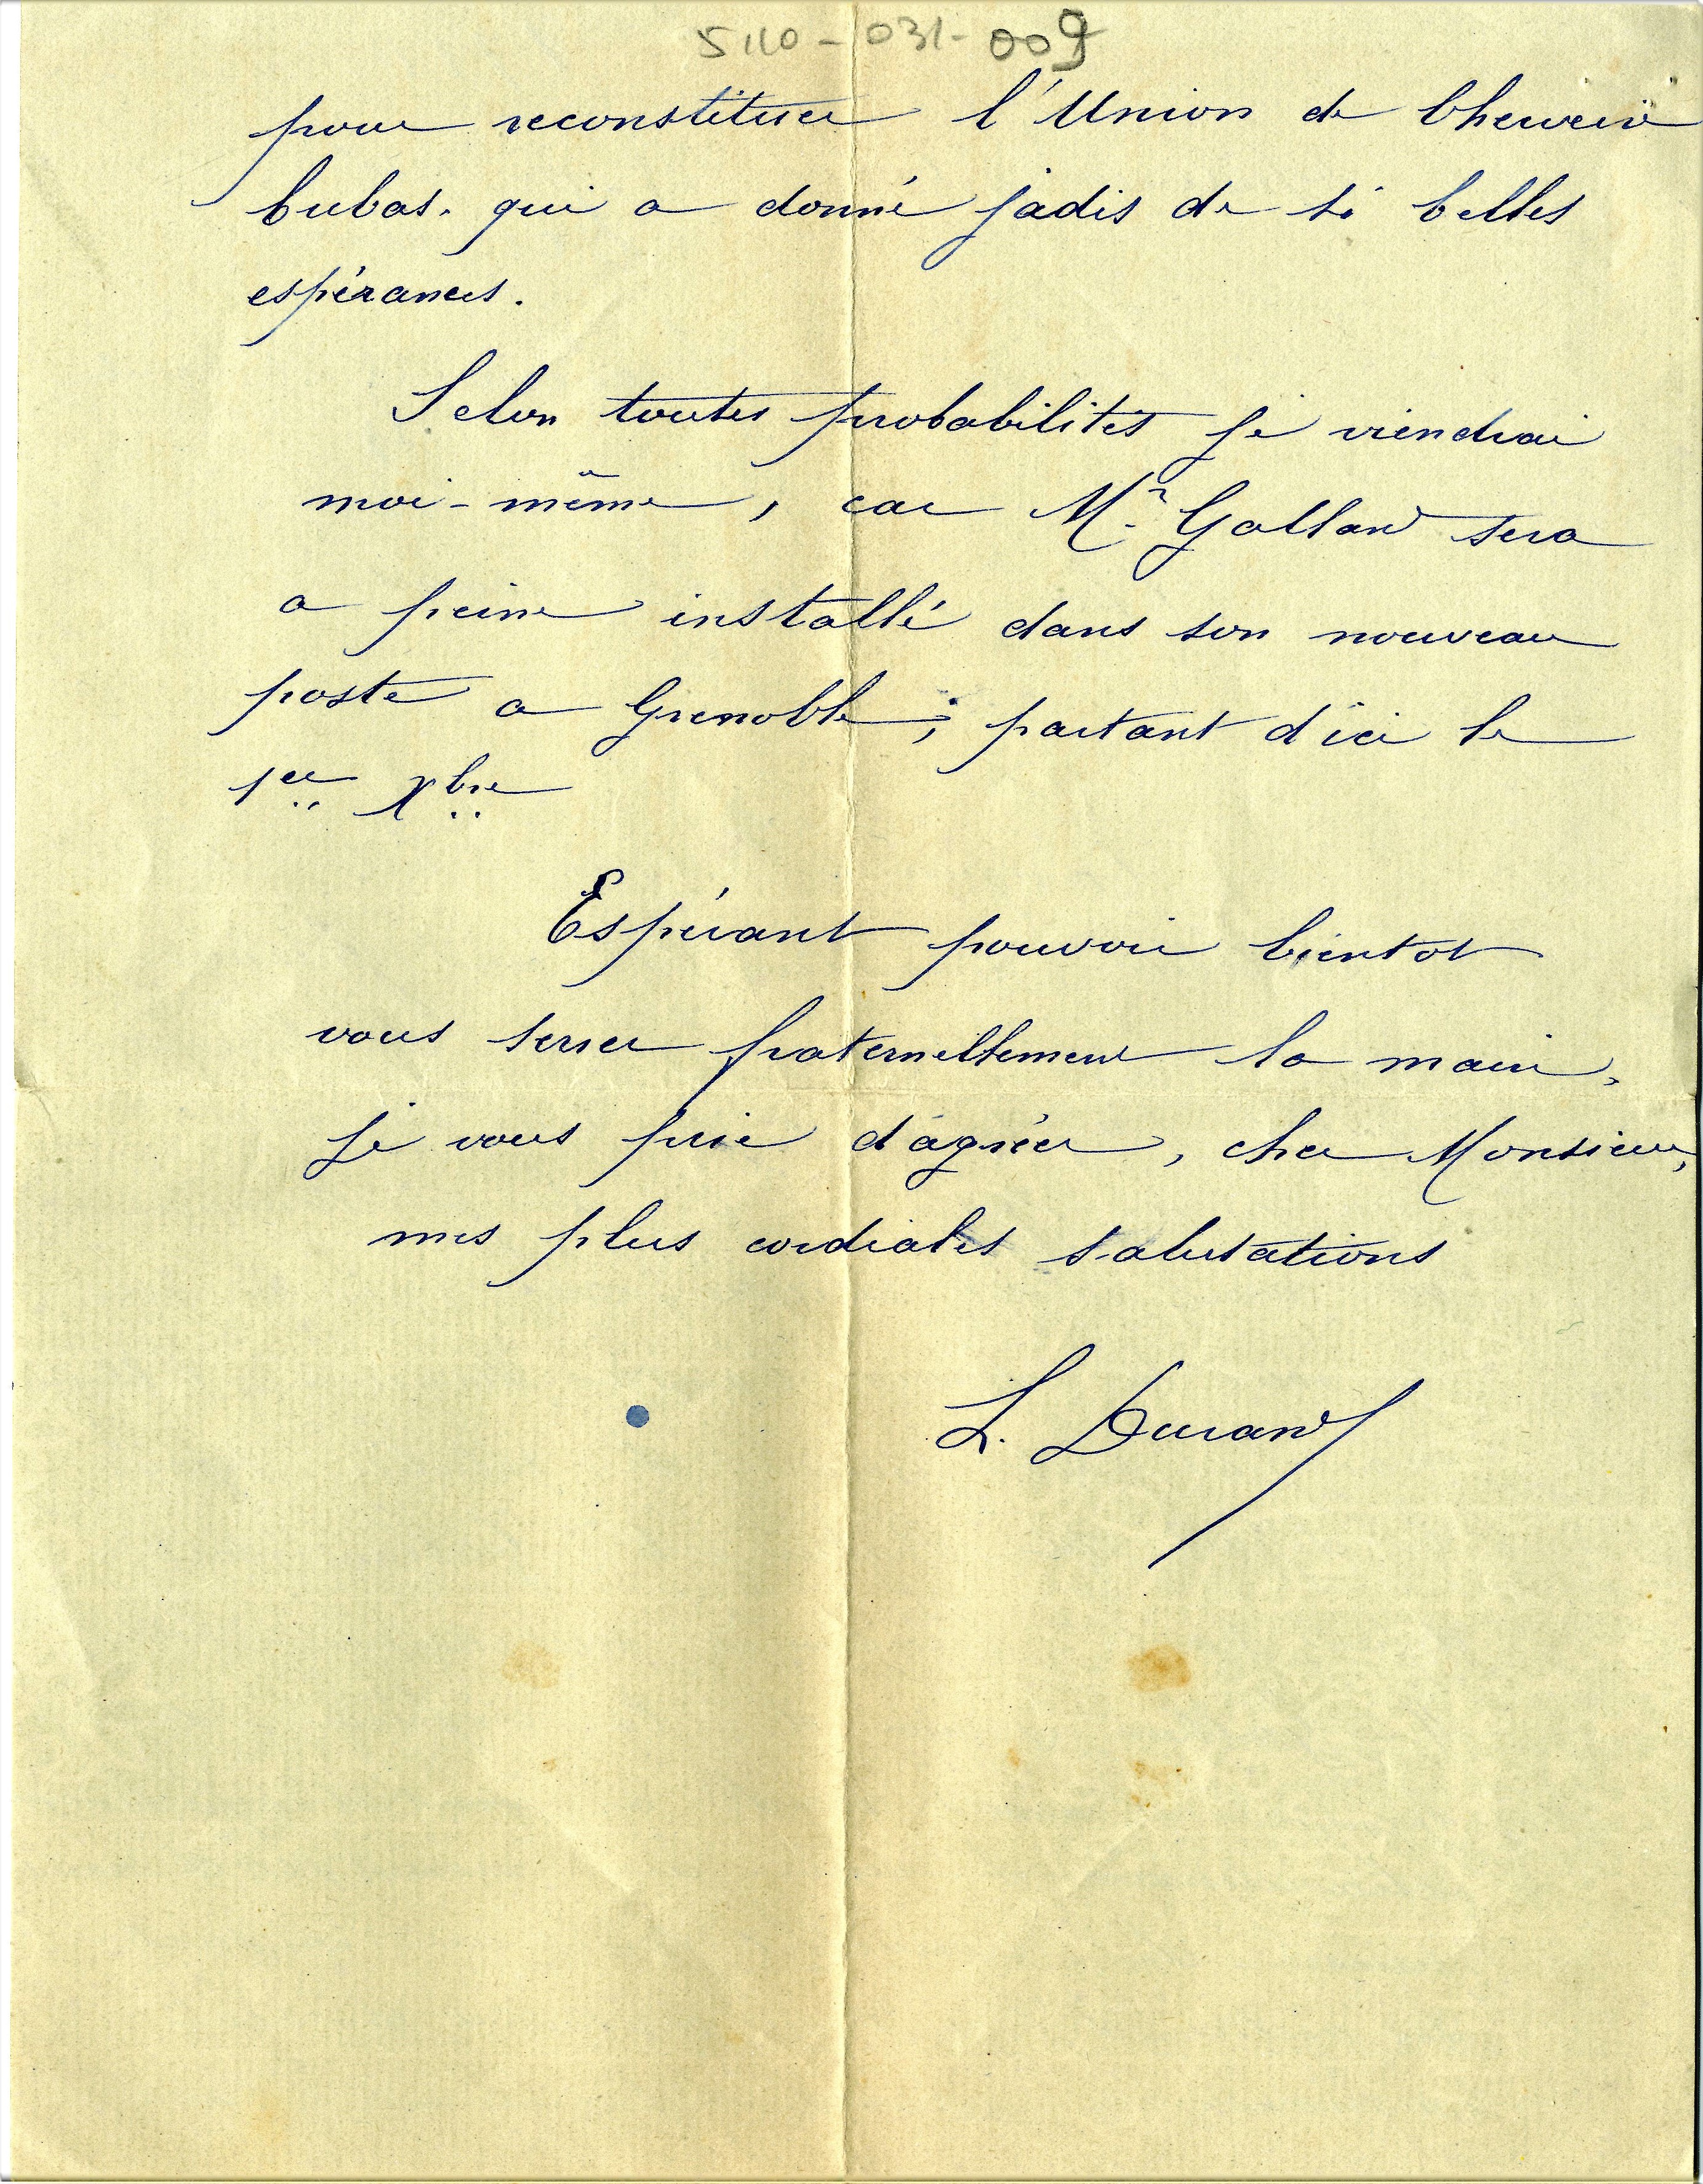 5110-031-009
pour reconstituer l'Union de
Cubas. qui a donné jadis de si belles
espérances.
Selon toutes probabilités je viendrai
moi-même, car Mr. Galland sera
a peine installé dans son nouveau
poste a Grenoble; partant d'ici le
1er Xbre
Espérant pouvoir bientot
vous serrer fraternellement la main,
je vous prie d'agréer, cher Monsieur,
mes plus cordiales salutations
L. Durand